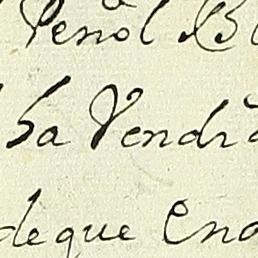 Peñol
ha Vendra
deque Eno